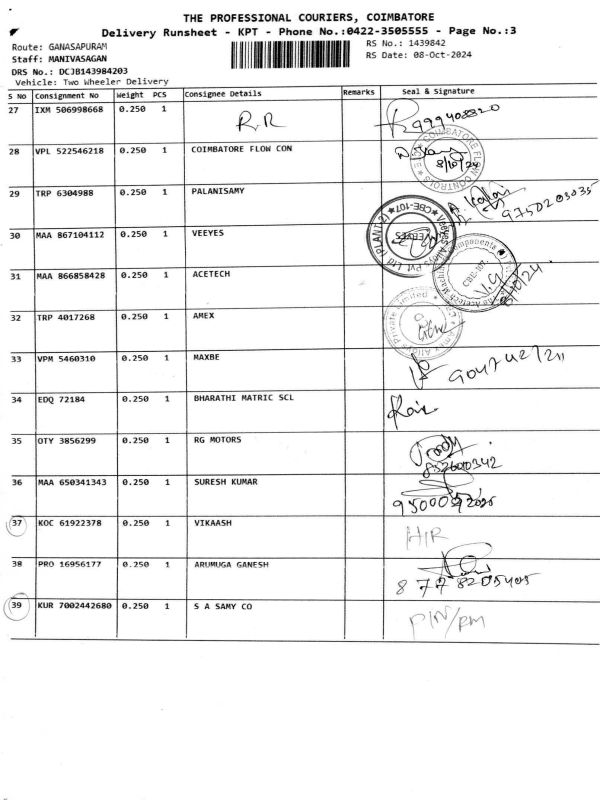 THE PROFESSIONAL COURIERS, COIMBATORE
Delivery Runsheet - KPT - Phone No.:0422-3505555 - Page No.:3
Route: GANASAPURAM
RS No.: 1439842
Staff: MANIVASAGAN
RS Date: 08-Oct-2024
DRS No.: DCJB143984203
Vehicle: Two Wheeler Delivery
S No Consignment No Weight PCS Consignee Details Remarks Seal & Signature
27 IXM 506998668 0.250 1 R.R
28 VPL 522546218 0.250 1 COIMBATORE FLOW CON 8/10/24
29 TRP 6304988 0.250 1 PALANISAMY 9750203035
30 MAA 867104112 0.250 1 VEEYES
31 MAA 866858428 0.250 1 ACETECH
32 TRP 4017268 0.250 1 AMEX
33 VPM 5460310 0.250 1 MAXBE
34 EDQ 72184 0.250 1 BHARATHI MATRIC SCL
35 OTY 3856299 0.250 1 RG MOTORS
36 MAA 650341343 0.250 1 SURESH KUMAR
37 KOC 61922378 0.250 1 VIKAASH H/R
38 PRO 16956177 0.250 1 ARUMUGA GANESH
39 KUR 7002442680 0.250 1 S A SAMY CO PIN/RM